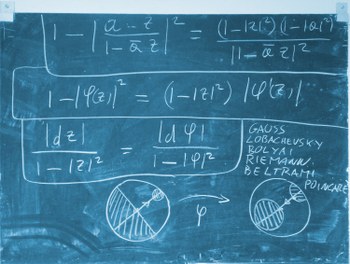 1 - |a - z / 1 - a̅ z|² = (1-|z|²)(1-|a|²) / |1 - a̅ z|²
1 - |φ(z)|² = (1-|z|²) |φ'(z)|
|dz| / 1-|z|² = |dφ| / 1-|φ|²
GAUSS
LOBACHEVSKY
BOLYAI
RIEMANN
BELTRAMI
POINCARE
φ